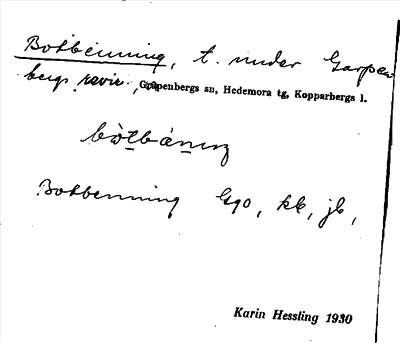 Botbenning, t. under Garpen
bergs revir. Garpenbergs sn, Hedemora tg, Kopparbergs l.
bòtbàniŋ
Botbenning Ggo, kb, jb,
Karin Hessling 1930